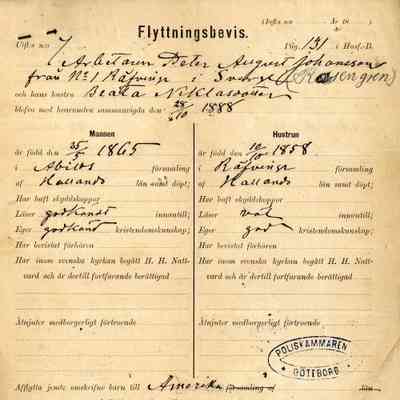 (Infts n:o År 18 )
Flyttningsbevis.
Utfts n:o 7 Pag. 131 i Husf.-B.
Arbetaren Peter August Johansson
från No 1 Räfvinge i Sverge (Rosengren)
och hans hustru Beata Niklasdotter
blefvo med hvarandra sammanvigda den 28/10 1888
Mannen
är född den 25/5 1865
i Abilds församling
af Hallands län samt döpt;
Har haft skyddskoppor
Läser godkändt innantill;
Eger godkänd kristendomskunskap;
Har bevistat förhören
Har inom svenska kyrkan begått H. H. Natt-
vard och är dertill fortfarande berättigad
Åtnjuter medborgerligt förtroende
Hustrun
är född den 10/10 1858
i Räfvinge församling
af Hallands län samt döpt;
Har haft skyddskoppor
Läser väl innantill;
Eger god kristendomskunskap;
Har bevistat förhören
Har inom svenska kyrkan begått H. H. Natt-
vard och är dertill fortfarande berättigad
Åtnjuter medborgerligt förtroende
POLISKAMMAREN
GÖTEBORG
Afflytta jemte omskrifne barn till Amerika församling af län